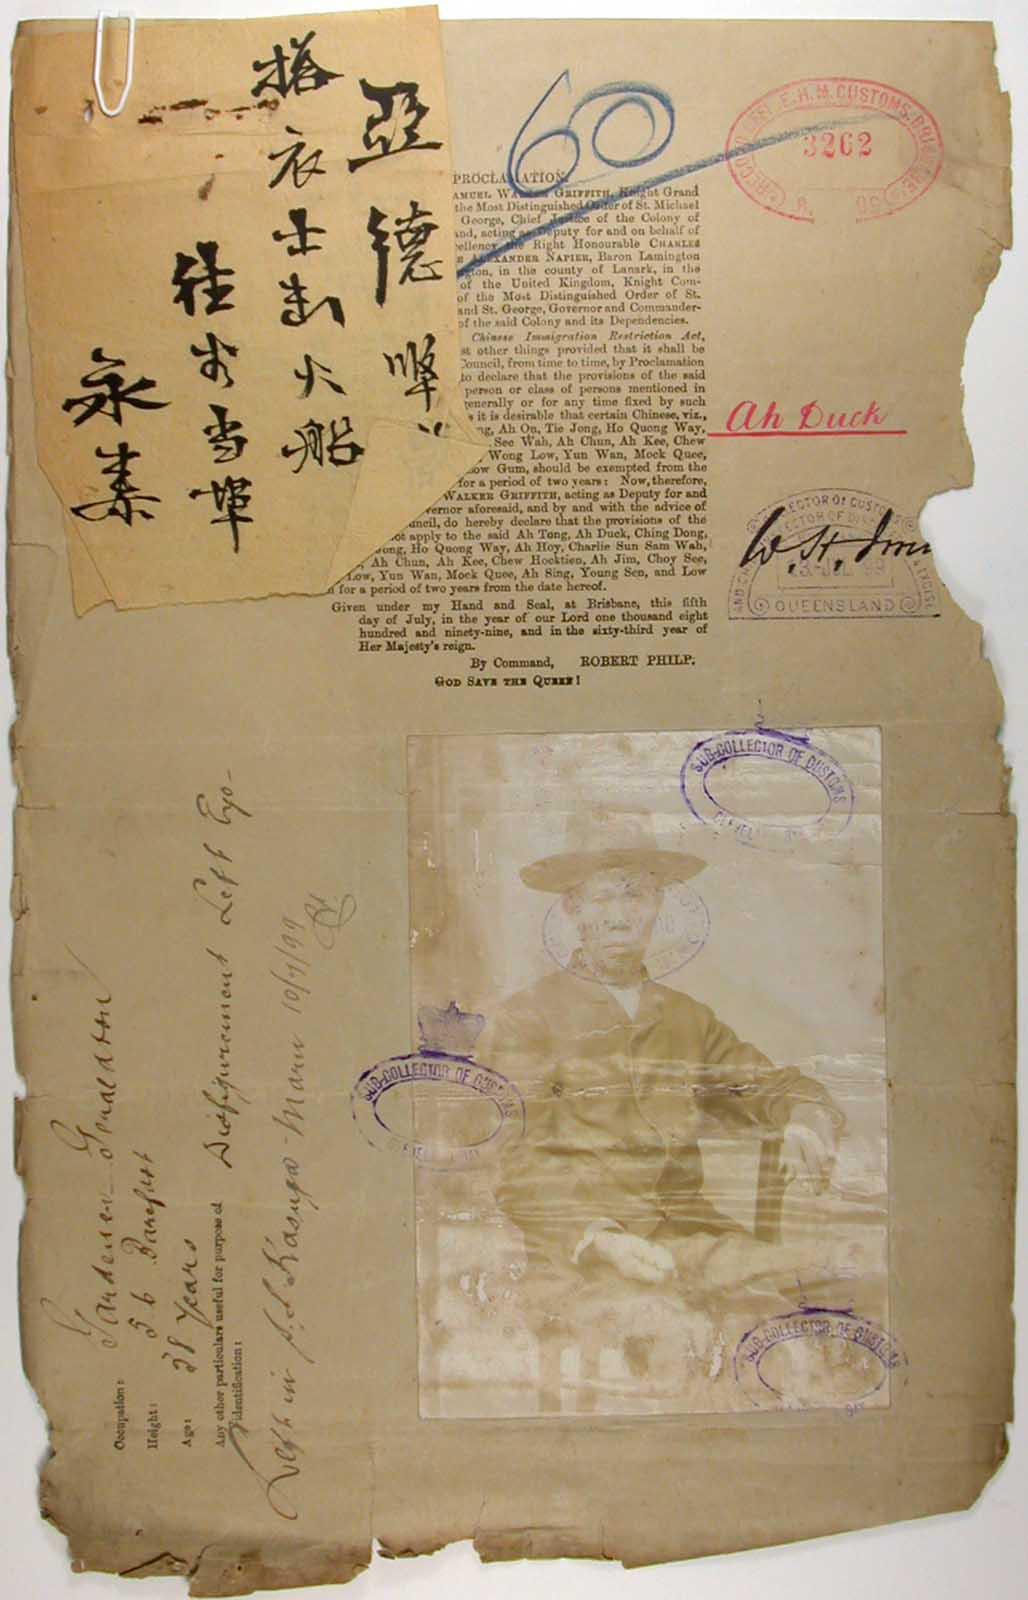 亞德
搭衣士剌火船
往
當埠
永
60
E. H. M. CUSTOMS.
3262
PROCLAMATION.
AMUEL WALKER GRIFFITH, Knight Grand
the Most Distinguished Order of St. Michael
George, Chief Justice of the Colony of
and, acting as Deputy for and on behalf of
cellency the Right Honourable CHARLES
E ALEXANDER NAPIER, Baron Lamington
gton, in the county of Lanark, in the
of the United Kingdom, Knight Com-
of the Most Distinguished Order of St.
and St. George, Governor and Commander-
of the said Colony and its Dependencies.
Chinese Immigration Restriction Act,
st other things provided that it shall be
Council, from time to time, by Proclamation
to declare that the provisions of the said
person or class of persons mentioned in
generally or for any time fixed by such
s it is desirable that certain Chinese, viz.,
ng, Ah On, Tie Jong, Ho Quong Way,
See Wah, Ah Chun, Ah Kee, Chew
Wong Low, Yun Wan, Mock Quee,
ow Gum, should be exempted from the
for a period of two years: Now, therefore,
WALKER GRIFFITH, acting as Deputy for and
vernor aforesaid, and by and with the advice of
uncil, do hereby declare that the provisions of the
not apply to the said Ah Tong, Ah Duck, Ching Dong,
ong, Ho Quong Way, Ah Hoy, Charlie Sun Sam Wah,
, Ah Chun, Ah Kee, Chew Hocktien, Ah Jim, Choy See,
Low, Yun Wan, Mock Quee, Ah Sing, Young Sen, and Low
for a period of two years from the date hereof.
Given under my Hand and Seal, at Brisbane, this fifth
day of July, in the year of our Lord one thousand eight
hundred and ninety-nine, and in the sixty-third year of
Her Majesty's reign.
By Command, ROBERT PHILP.
GOD SAVE THE QUEEN!
Ah Duck
COLLECTOR OF CUSTOMS
W. H. Irvin
QUEENSLAND
SUB-COLLECTOR OF CUSTOMS
SUB-COLLECTOR OF CUSTOMS
SUB-COLLECTOR OF CUSTOMS
Occupation: Gardener Geraldton
Height: 5 6 Barefoot
Age: 38 Years
Any other particulars useful for purpose of
identification: Disfigurement Left Eye
Left in s.s Kasuga Maru 10/7/99